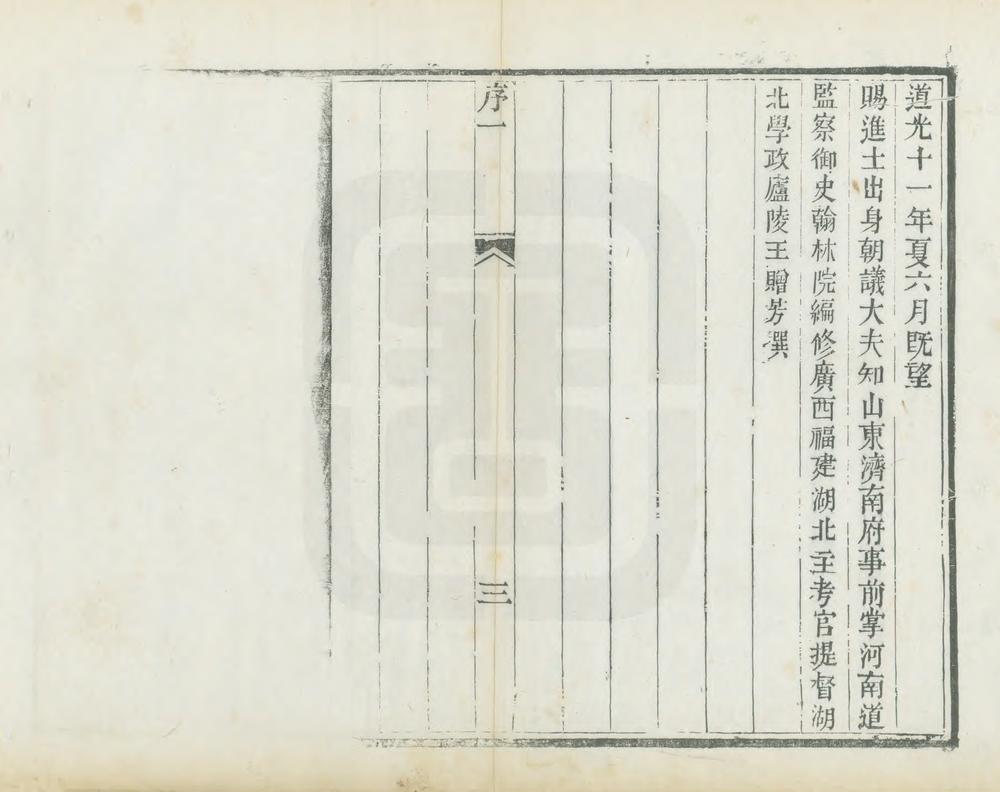 道光十一年夏六月既望
賜進士出身朝議大夫知山東濟南府事前掌河南道
監察御史翰林院編修廣西福建湖北主考官提督湖
北學政廬陵王贈芳撰
序一
三